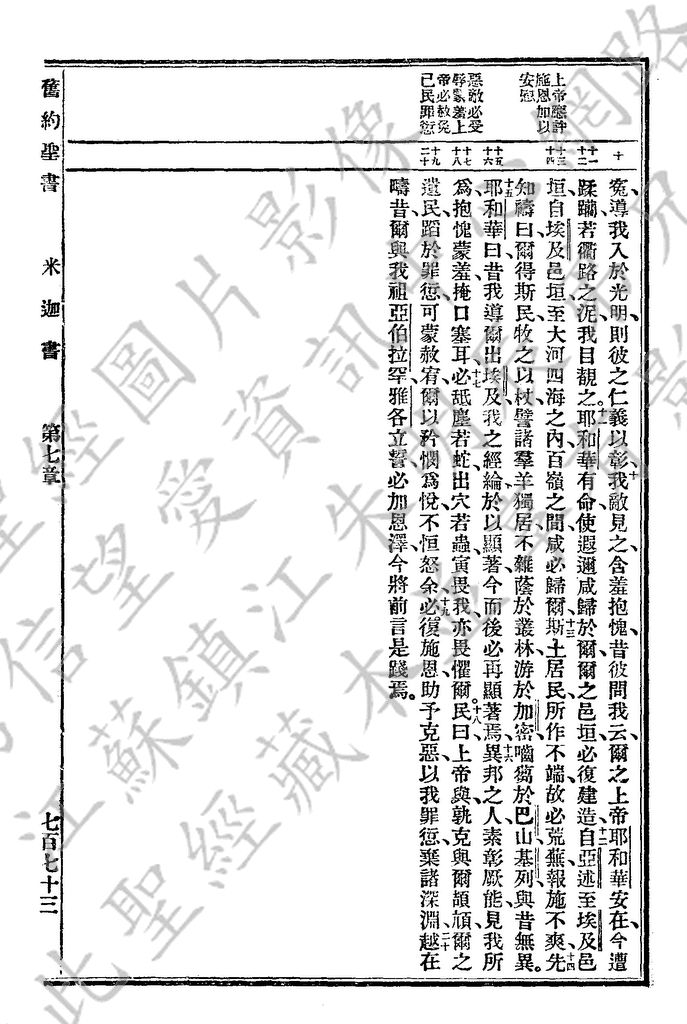 上帝應許
施恩加以
安慰
惡敵必受
辱蒙羞上
帝必赦免
己民罪愆
十
十一
十二
十三
十四
十五
十六
十七
十八
十九
二十
冤、導我入於光明、則彼之仁義以彰、十我敵見之、含羞抱愧、昔彼問我云、爾之上帝耶和華安在、今遭
蹂躪、若衢路之泥、我目覩之。十一耶和華有命、使遐邇咸歸於爾、爾之邑垣、必復建造、十二自亞述至埃及邑
垣、自埃及邑垣至大河、四海之內、百嶺之間、咸必歸爾、十三斯土居民、所作不端、故必荒蕪、報施不爽、十四先
知禱曰、爾得斯民、牧之以杖、譬諸羣羊、獨居不雜、蔭於叢林、游於加密、嚙蒭於巴山基列、與昔無異。
十五耶和華曰、昔我導爾出埃及、我之經綸、於以顯著、今而後必再顯著焉、十六異邦之人、素彰厥能、見我所
爲、抱愧蒙羞、掩口塞耳、十七必舐塵若蛇、出穴若蟲、寅畏我、亦畏懼爾。十八民曰、上帝與孰克與爾頡頏、爾之
遺民、蹈於罪愆、可蒙赦宥、爾以矜憫爲悅、不恒怒余、十九必復施恩、助予克惡、以我罪愆、棄諸深淵、二十越在
疇昔、爾與我祖亞伯拉罕雅各立誓、必加恩澤、今將前言是踐焉。
舊約聖書　米迦書　第七章　七百七十三
江蘇鎮江